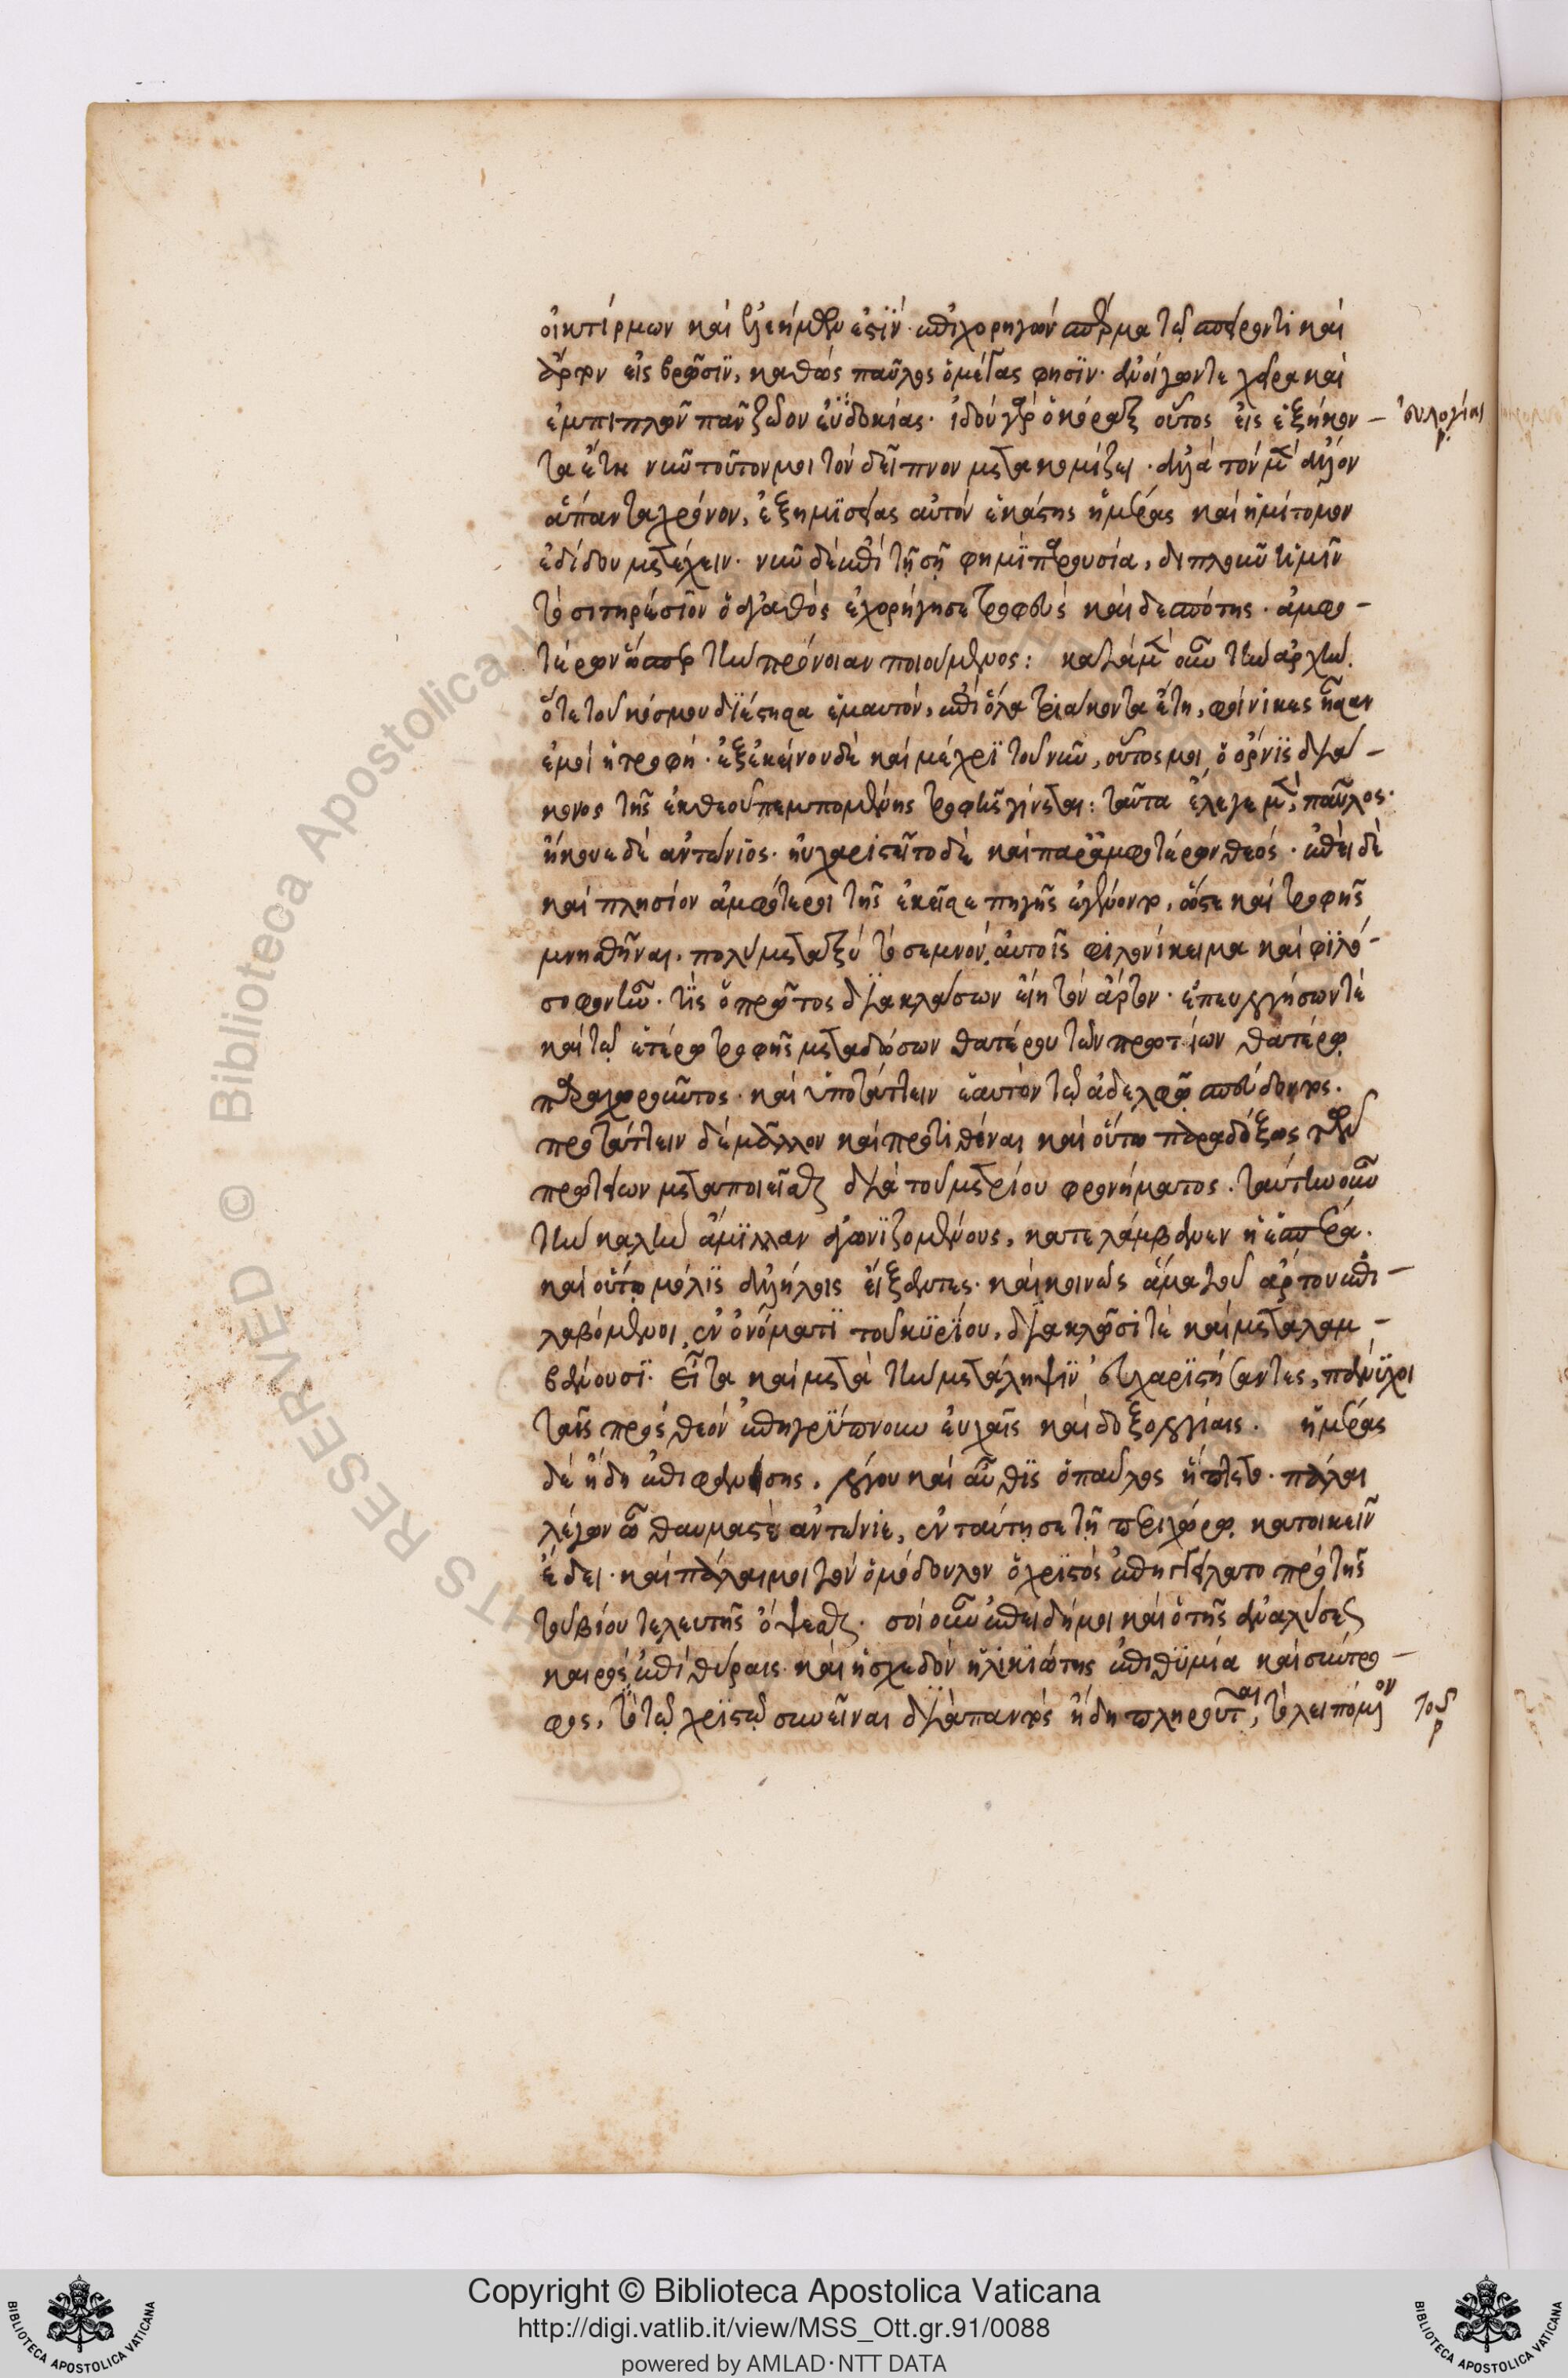 οἰκτίρμων καὶ ἐλεήμων ἐστὶν· ἐπιχορηγῶν σπέρμα τῷ σπείροντι καὶ
ἄρτον εἰς βρῶσιν, καθὼς παῦλος ὁ μέγας φησὶν· ἀνοίγων τε χεῖρα καὶ
ἐμπιπλῶν πᾶν ζῶον εὐδοκίας· ἰδοὺ γὰρ ὁ κόραξ οὗτος εἰς ἑξήκον –
τα ἔτη νῦν τοῦτον μοι τὸν δεῖπνον μετακομίζει· ἀλλὰ τὸν μὲν ἄλλον
ἅπαντα χρόνον, ἐξ ἡμισείας αὐτὸν ἑκάστης ἡμέρας καὶ ἡμίτομον
ἐδίδου μετέχειν· νῦν δὲ ἐπὶ τῇ σῇ φημὶ παρουσία, διπλοῦν ἡμῖν
τὸ σιτηρέσιον ὁ ἀγαθὸς ἐχορήγησε τροφεὺς καὶ δεσπότης· ἀμφο –
τέρων ὥσπερ τὴν πρόνοιαν ποιούμενος: κατὰ μὲν οὖν τὴν ἀρχὴν.
ὅτε τοῦ κόσμου διέστησα ἐμαυτὸν, ἐπὶ ὅλα τριάκοντα ἔτη, φοίνικες ἦσαν
ἐμοὶ ἡ τροφή· ἐξ ἐκείνου δὲ καὶ μέχρι τοῦ νῦν, οὗτος μοι ὁ ὄρνις διά –
κονος τῆς ἐκ θεοῦ πεμπομένης τροφῆς γίνεται: ταῦτα ἔλεγε μὲν ὁ παῦλος·
ἤκουε δὲ ἀντώνιος· ηὐχαριστεῖτο δὲ καὶ παρ' ἀμφοτέρων θεός· ἐπεὶ δὲ
καὶ πλησίον ἀμφότεροι τῆς ἐκεῖσε πηγῆς ἐγένοντο, ὥστε καὶ τροφῆς
μνησθῆναι, πολὺ μεταξὺ τὸ σεμνὸν αὐτοῖς φιλονίκειμα καὶ φιλό –
σοφον ἦν· τίς ὁ πρῶτος διακλάσων εἴη τὸν ἄρτον· ἐπευλογήσων τὲ
καὶ τῷ ἑτέρῳ τροφῆς μεταδώσων θατέρου τῶν πρωτείων θατέρῳ
παραχωροῦντος· καὶ ὑποτάττειν ἑαυτὸν τῷ ἀδελφῷ σπεύδοντος.
προτάττειν δὲ μᾶλλον καὶ προτιθέναι καὶ οὕτω παραδόξως τῶν
πρωτείων μεταποιεῖσθαι διὰ τοῦ μετρίου φρονήματος. ταύτην οὖν
τὴν καλὴν ἅμιλλαν ἀγωνιζομένους, κατελάμβανεν ἡ ἑσπέρα.
καὶ οὕτω μόλις ἀλλήλοις εἴξαντες· καὶ κοινῶς ἅμα τοῦ ἄρτου ἐπι –
λαβόμενοι ἐν ὀνόματι τοῦ κυρίου, διακλῶσί τε καὶ μεταλαμ –
βάνουσι. Εἶτα καὶ μετὰ τὴν μετάληψιν εὐχαριστήσαντες, πάννυχοι
ταῖς πρὸς θεὸν ἐπηγρύπνουν εὐχαῖς καὶ δοξολογίαις. ἡμέρας
δὲ ἤδη ἐπιφανείσης, λόγου καὶ αὖθις ὁ παῦλος ἥπτετο· πάλαι
λέγων ὦ θαυμαστὲ ἀντώνιε, ἐν ταύτῃ σε τῇ περιχώρῳ κατοικεῖν
ἔδει· καὶ πάλαι μοι τὸν ὁμόδουλον ὁ χριστὸς ἐπηγγείλατο πρὸ τῆς
τοῦ βίου τελευτῆς ὄψεσθαι· σοὶ οὖν ἐπειδή μοι καὶ ὁ τῆς ἀναλύσεως
καιρὸς ἐπὶ θύραις· καὶ ἡ σχεδὸν ἡλικιώτης ἐπιθυμία καὶ σύντρο –
φος, τὸ τῷ χριστῷ συνεῖναι διὰ παντὸς ἤδη πληροῦται, τὸ λειπόμενον